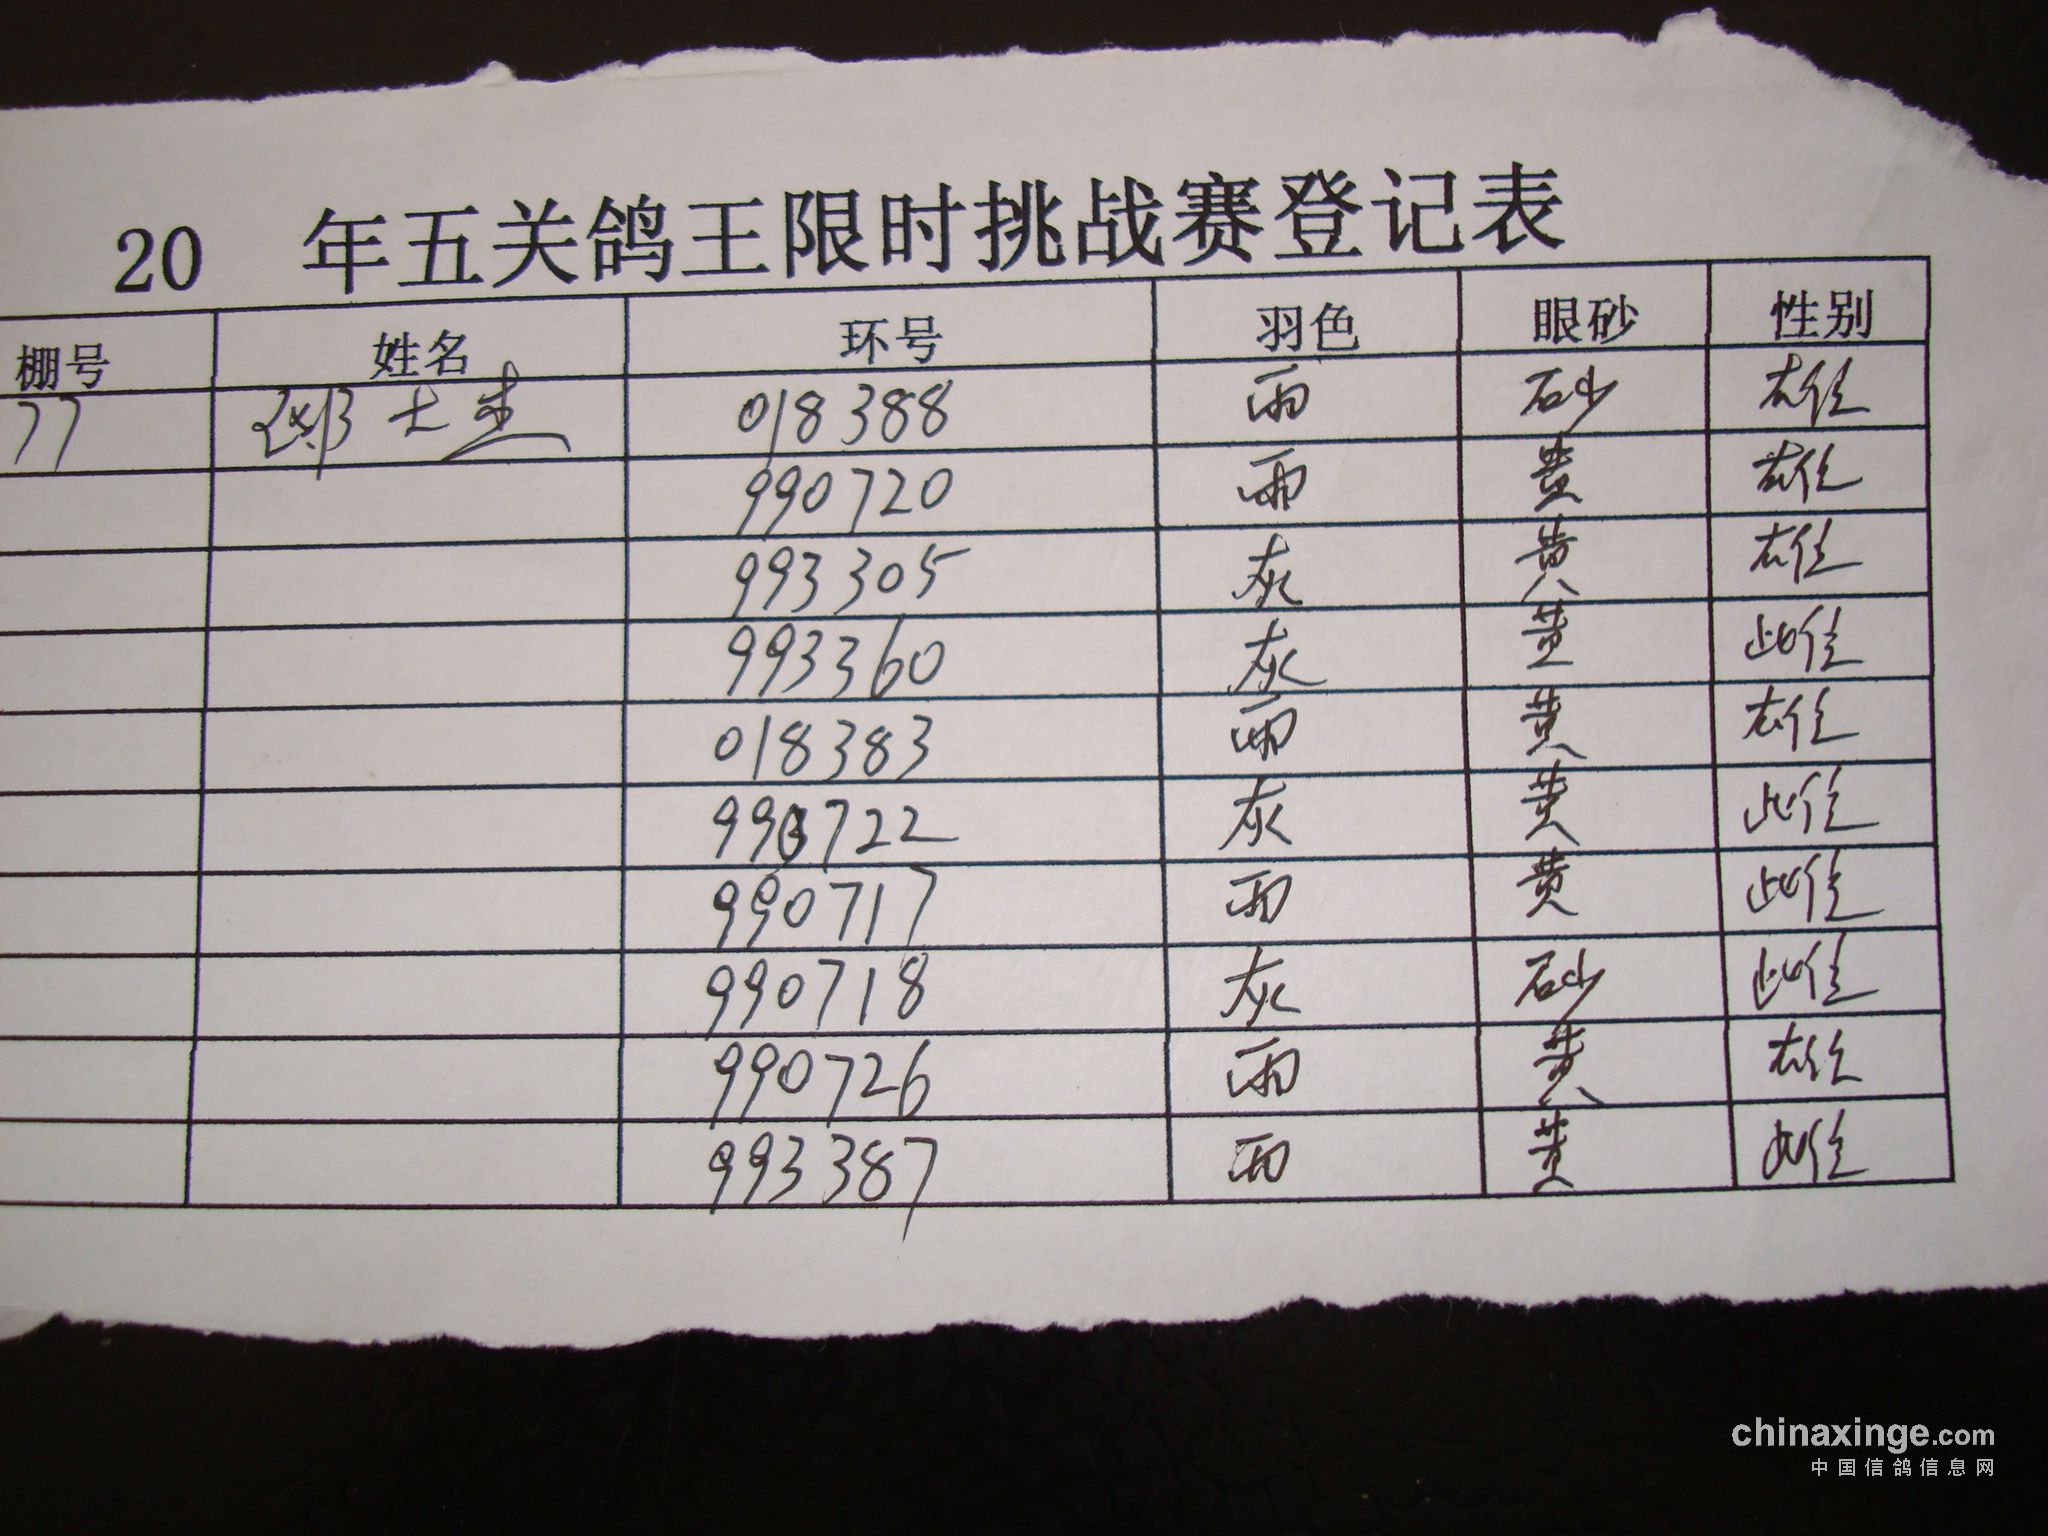 20 年五关鸽王限时挑战赛登记表
棚号 姓名 环号 羽色 眼砂 性别
77 018388 雨 砂 雄
990720 雨 黄 雄
993305 灰 黄 雄
993360 灰 黄 雌
018383 雨 黄 雄
990722 灰 黄 雌
990717 雨 黄 雌
990718 灰 砂 雌
990726 雨 黄 雄
993387 雨 黄 雌
chinaxinge.com
中国信鸽信息网